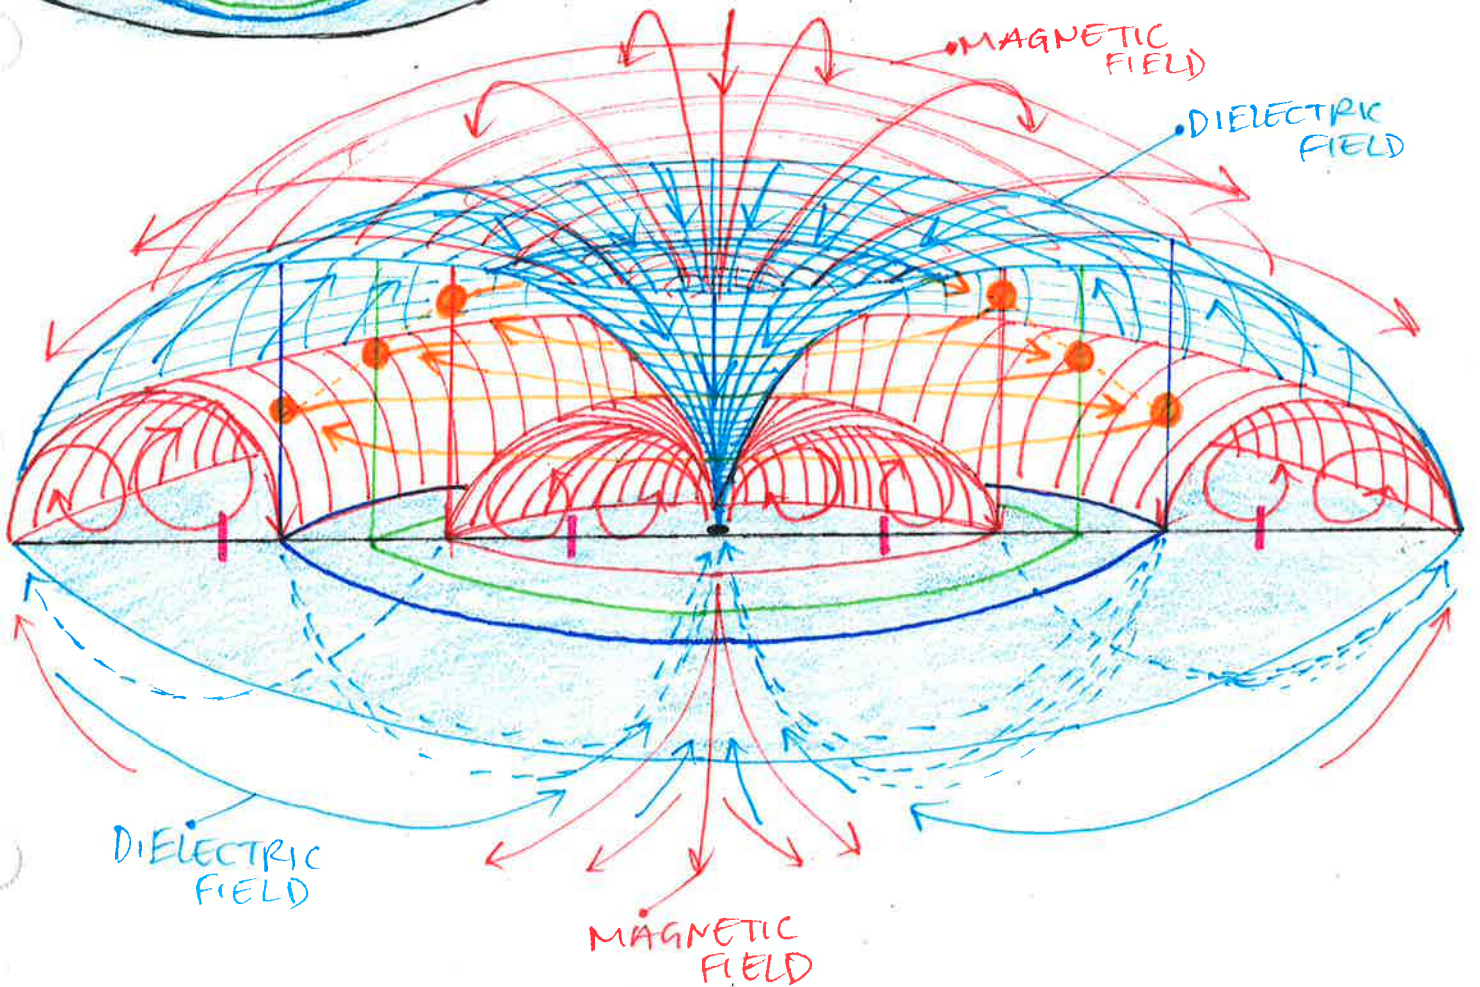 MAGNETIC
FIELD
DIELECTRIC
FIELD
DIELECTRIC
FIELD
MAGNETIC
FIELD